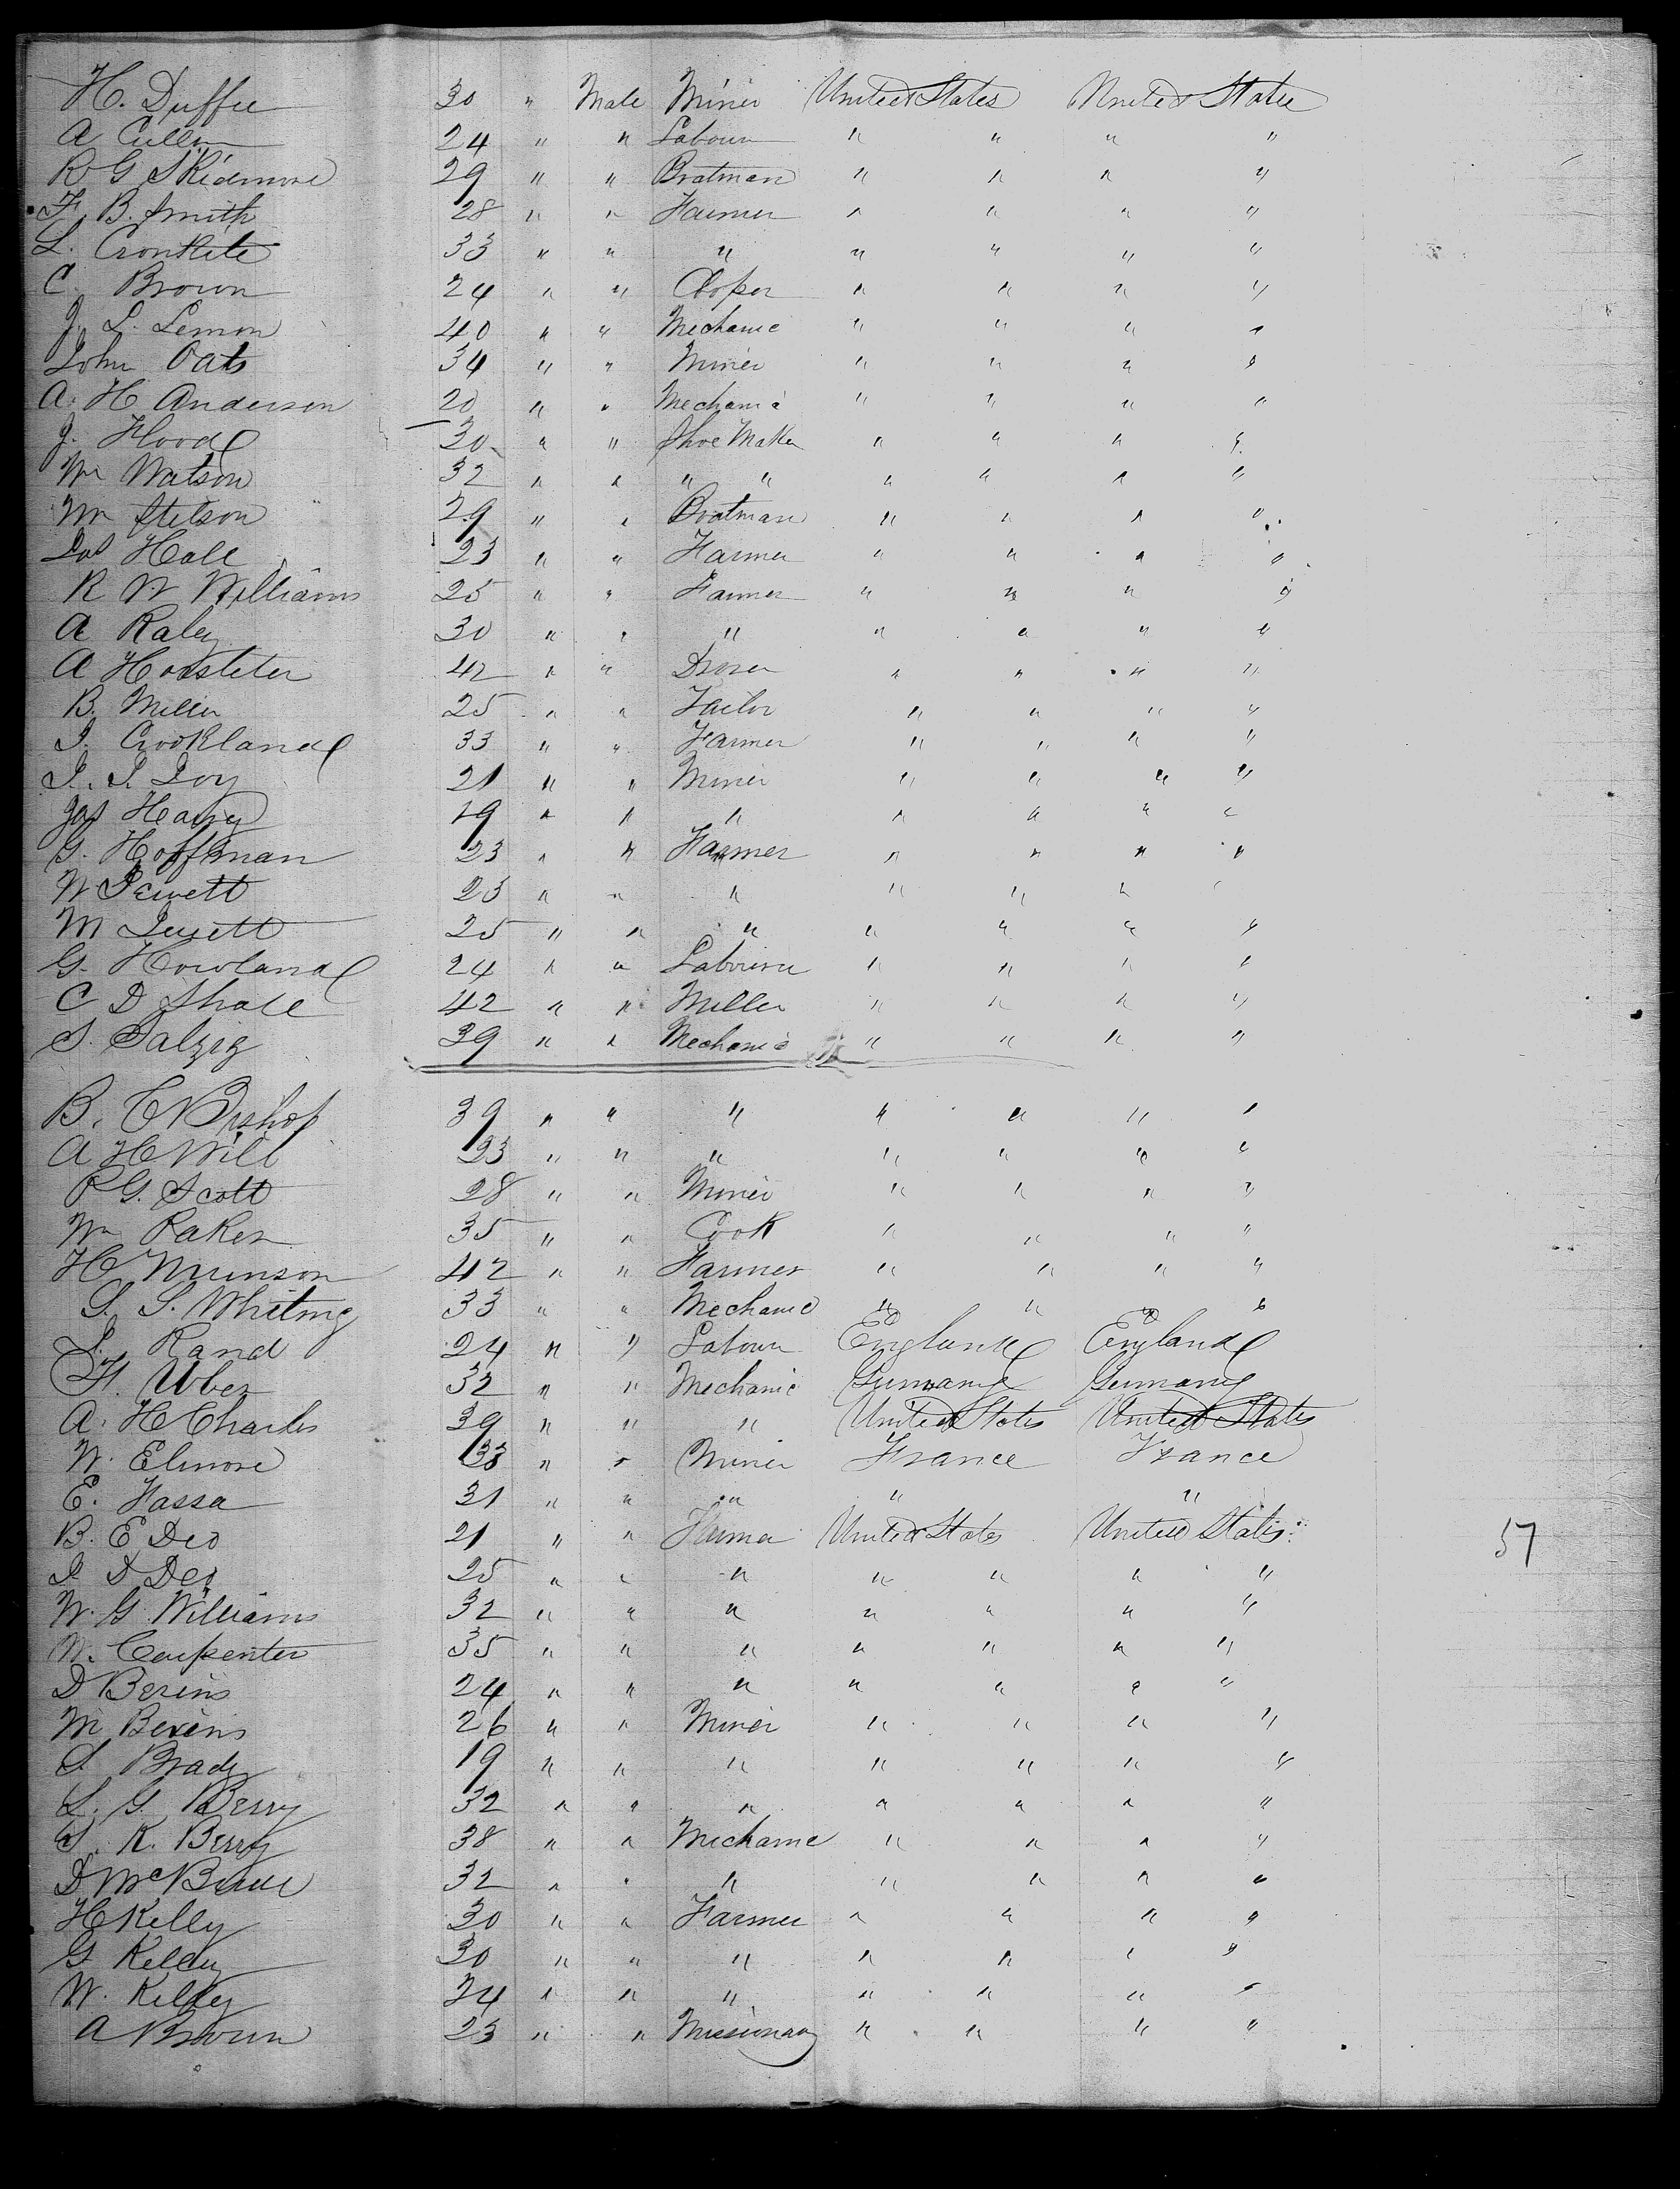 H. Duffee 30 " Male Miner United States United States
A Cullen 24 " " Labourer " " " "
R G Skidmore 29 " " Boatman " " " "
F. B. Smith 28 " " Farmer " " " "
L. Cronkite 33 " " " " " " "
C. Brown 24 " " Cooper " " " "
J. L. Lemon 40 " " Mechanic " " " "
John Oats 34 " " Miner " " " "
A. H Anderson 20 " " Mechanic " " " "
J. Hood 30 " " Shoe Maker " " " "
Wm Watson 32 " " " " " " " "
Wm Stetson 29 " " Boatman " " " "
Hall 23 " " Farmer " " " "
R W Williams 25 " " Farmer " " " "
A Raley 30 " " " " " " "
A 42 " " Drover " " " "
B. Miller 25 " " Tailor " " " "
Crookland 33 " " Farmer " " " "
21 " " Miner " " " "
Jas 19 " " " " " " "
G. Hoffman 23 " " Farmer " " " "
W Jewett 23 " " " " " " "
M Jewett 25 " " " " " " "
G. Howland 24 " " Labourer " " " "
C D Shall 42 " " Miller " " " "
S. Salzig 39 " " Mechanic " " " "
B. C Bishop 39 " " " " " " "
A H Will 23 " " " " " " "
R G. Scott 28 " " Miner " " " "
Wm 35 " " Cook " " " "
H Munson 42 " " Farmer " " " "
S. S. Whiting 33 " " Mechanic " " " "
Rand 24 " " Labourer England England
H. Uber 32 " " Mechanic Germany Germany
A. H Charles 39 " " " United States United States
W. Elmore 33 " " Miner France France
E. Fassa 31 " " " " "
B. E Deo 21 " " Farmer United States United States 57
D Deo 25 " " " " " " "
W. G Williams 32 " " " " " " "
W. Carpenter 35 " " " " " " "
D Bevins 24 " " " " " " "
M Bevins 26 " " Miner " " " "
S. Brady 19 " " " " " " "
L. G. Berry 32 " " " " " " "
S. K. Berry 38 " " Mechanic " " " "
D McBride 32 " " " " " " "
H Kelly 30 " " Farmer " " " "
G Kelley 30 " " " " " " "
W. Kelley 24 " " " " " " "
A Brown 23 " " Missionary " " " "